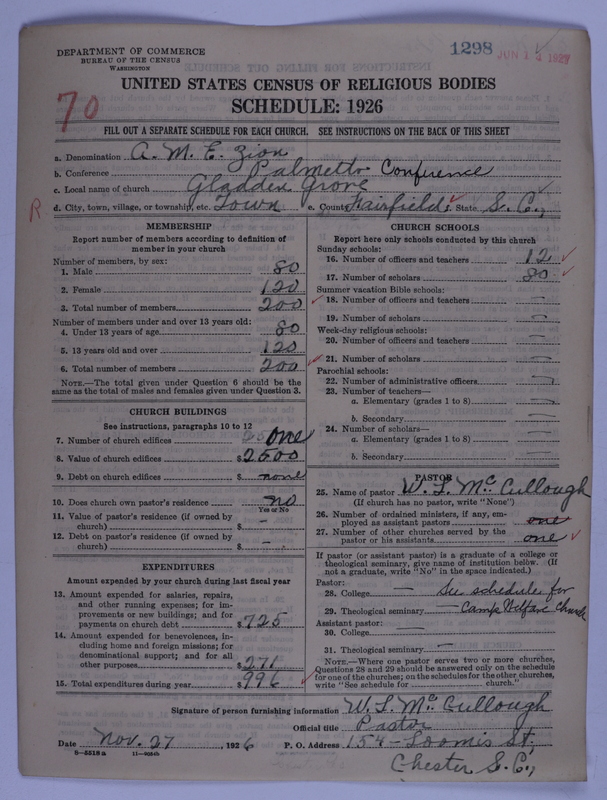 DEPARTMENT OF COMMERCE
BUREAU OF THE CENSUS
WASHINGTON
1298
JUN 13 1927
UNITED STATES CENSUS OF RELIGIOUS BODIES
SCHEDULE: 1926
70
FILL OUT A SEPARATE SCHEDULE FOR EACH CHURCH. SEE INSTRUCTIONS ON THE BACK OF THIS SHEET
a. Denomination A. M. E. Zion
b. Conference Palmetto Conference
c. Local name of church Gladden Grove
R
d. City, town, village, or township, etc. Town e. County Fairfield f. State S. C.,
MEMBERSHIP
Report number of members according to definition of
member in your church
Number of members, by sex:
1. Male 80
2. Female 120
3. Total number of members 200
Number of members under and over 13 years old:
4. Under 13 years of age 80
5. 13 years old and over 120
6. Total number of members 200
NOTE.—The total given under Question 6 should be the
same as the total of males and females given under Question 3.
CHURCH BUILDINGS
See instructions, paragraphs 10 to 12
7. Number of church edifices one
8. Value of church edifices $2500
9. Debt on church edifices $ none
10. Does church own pastor's residence no
Yes or No
11. Value of pastor's residence (if owned by
church) $ —
12. Debt on pastor's residence (if owned by
church) $ —
EXPENDITURES
Amount expended by your church during last fiscal year
13. Amount expended for salaries, repairs,
and other running expenses; for im-
provements or new buildings; and for
payments on church debt $725
14. Amount expended for benevolences, in-
cluding home and foreign missions; for
denominational support; and for all
other purposes $271
15. Total expenditures during year $996
CHURCH SCHOOLS
Report here only schools conducted by this church
Sunday schools:
16. Number of officers and teachers 12
17. Number of scholars 80
Summer vacation Bible schools:
18. Number of officers and teachers —
19. Number of scholars —
Week-day religious schools:
20. Number of officers and teachers —
21. Number of scholars —
Parochial schools:
22. Number of administrative officers —
23. Number of teachers—
a. Elementary (grades 1 to 8) —
b. Secondary —
24. Number of scholars—
a. Elementary (grades 1 to 8) —
b. Secondary —
PASTOR
25. Name of pastor W. L. McCullough
(If church has no pastor, write "None")
26. Number of ordained ministers, if any, em-
ployed as assistant pastors one
27. Number of other churches served by the
pastor or his assistants one
If pastor (or assistant pastor) is a graduate of a college or
theological seminary, give name of institution below. (If
not a graduate, write "No" in the space indicated.)
Pastor:
28. College — See schedule for
29. Theological seminary — Camp Welfare Church
Assistant pastor:
30. College —
31. Theological seminary —
NOTE.—Where one pastor serves two or more churches,
Questions 28 and 29 should be answered only on the schedule
for one of the churches; on the schedules for the other churches,
write "See schedule for ______ church."
Signature of person furnishing information W. L. McCullough
Official title Pastor
Date Nov. 27, 1926 P. O. Address 154 - Loomis St,
Chester S. C.,
8—5518a